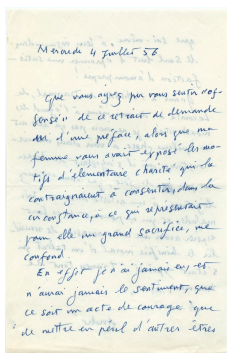 Mercredi 4 Juillet 56
Que vous ayez pu vous sentir "of-
fensé" de ce retrait de demande
d'une préface, alors que ma
femme vous avait exposé les mo-
tifs d'élémentaire charité qui la
contraignaient à consentir, dans la
circonstance, à ce qui représentait
pour elle un grand sacrifice, me
confond.
En effet je n'ai jamais eu, et
n'aurai jamais le sentiment, que
ce soit un acte de courage que
de mettre en péril d'autres êtres